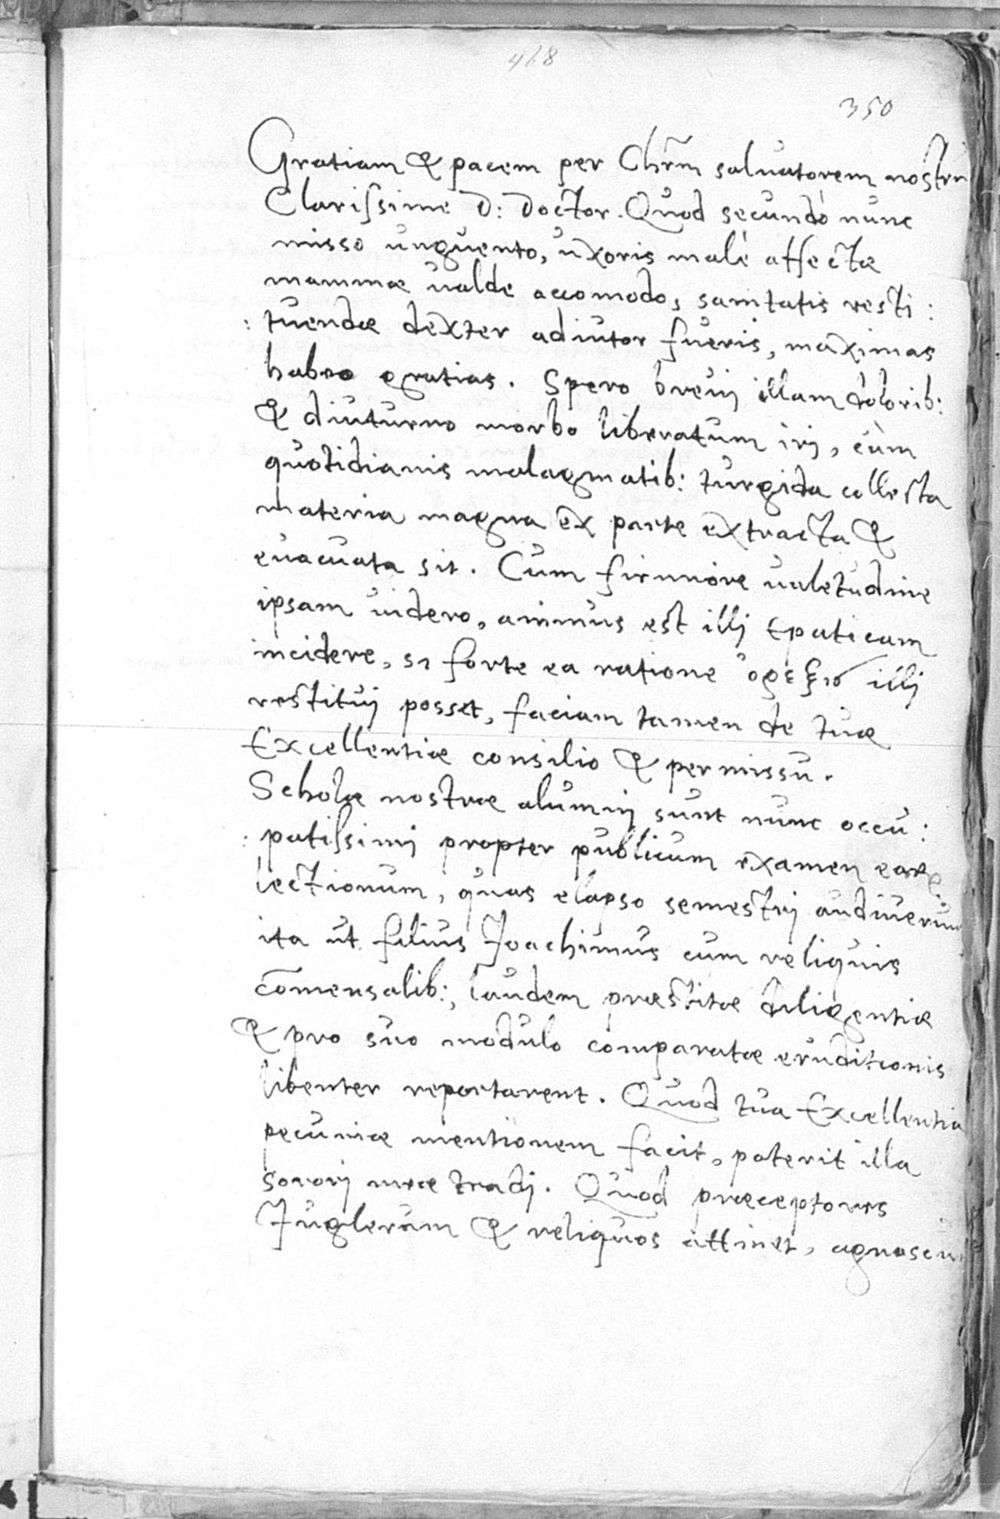 468
350
Gratiam & pacem per Chr̃m saluatorem nostrũ
Clarissime D: Doctor. Quod secundò nunc
misso unguento, uxoris malè affectæ
mammæ ualde accomodo, sanitatis resti:
:tuendæ dexter adiutor fueris, maximas
habeo gratias. Spero breui illam dolorib:
& diuturno morbo liberatum iri, cùm
quotidianis malagmatib: turgida collecta
materia magna ex parte extracta &
euacuata sit. Cum firmiore ualetudine
ipsam uidero, animus est illi Epaticam
incidere, si forte ea ratione ὄρεξις illi
restitui posset, faciam tamen de tuæ
Excellentiæ consilio & permissu.
Scholæ nostræ alumni sunt nunc occu:
:patissimi propter publicum examen earꝝ
lectionum, quas elapso semestri audiuerun
ita ut filius Joachimus cum reliquis
com̃ensalib:, laudem præstitæ diligentiæ
& pro suo modulo comparatæ eruditionis
libenter reportarent. Quod tua Excellentia
pecuniæ mentionem facit, poterit illa
sorori meæ tradi. Quod præceptores
Juglerum & reliquos attinet, agnoscun